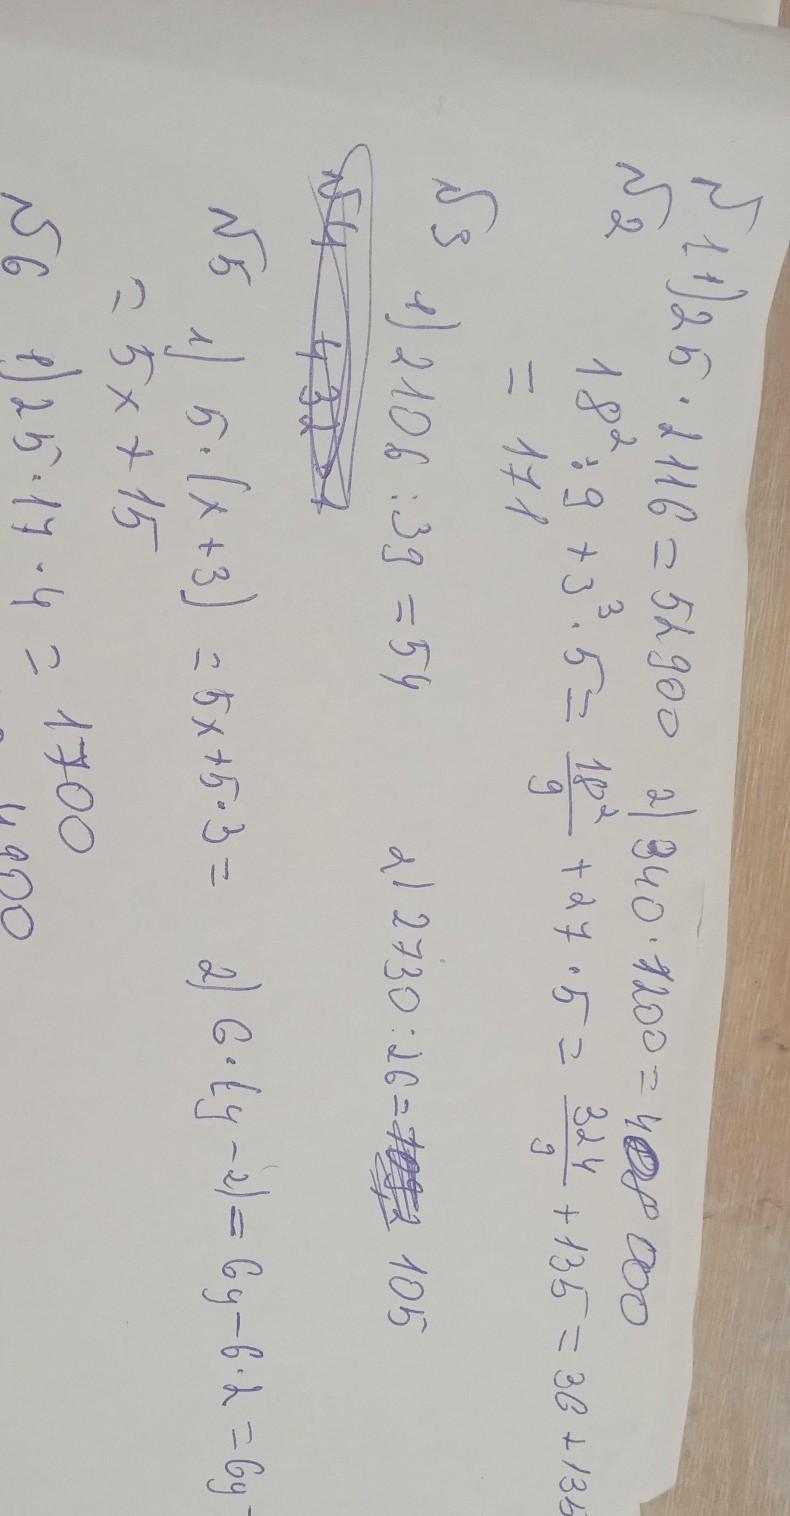 №1 1) 25 · 2116 = 52900 2) 340 · 1200 = 408 000
№2 18² : 9 + 3³ · 5 = 18²/9 + 27 · 5 = 324/9 + 135 = 36 + 135
= 171
№3 1) 2106 : 39 = 54 2) 2730 : 26 = 105
№5 1) 5 · (x + 3) = 5x + 5 · 3 = 2) 6 · (y - 2) = 6y - 6 · 2 = 6y -
= 5x + 15
№6 1) 25 · 17 · 4 = 1700